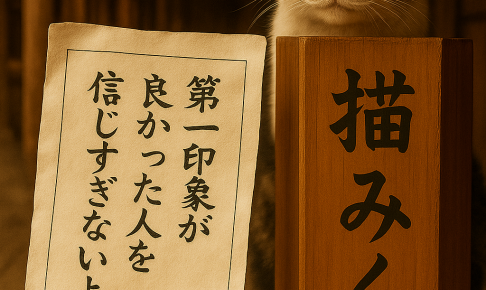 第一印象が
良かった人を
信じすぎないよ
描みく